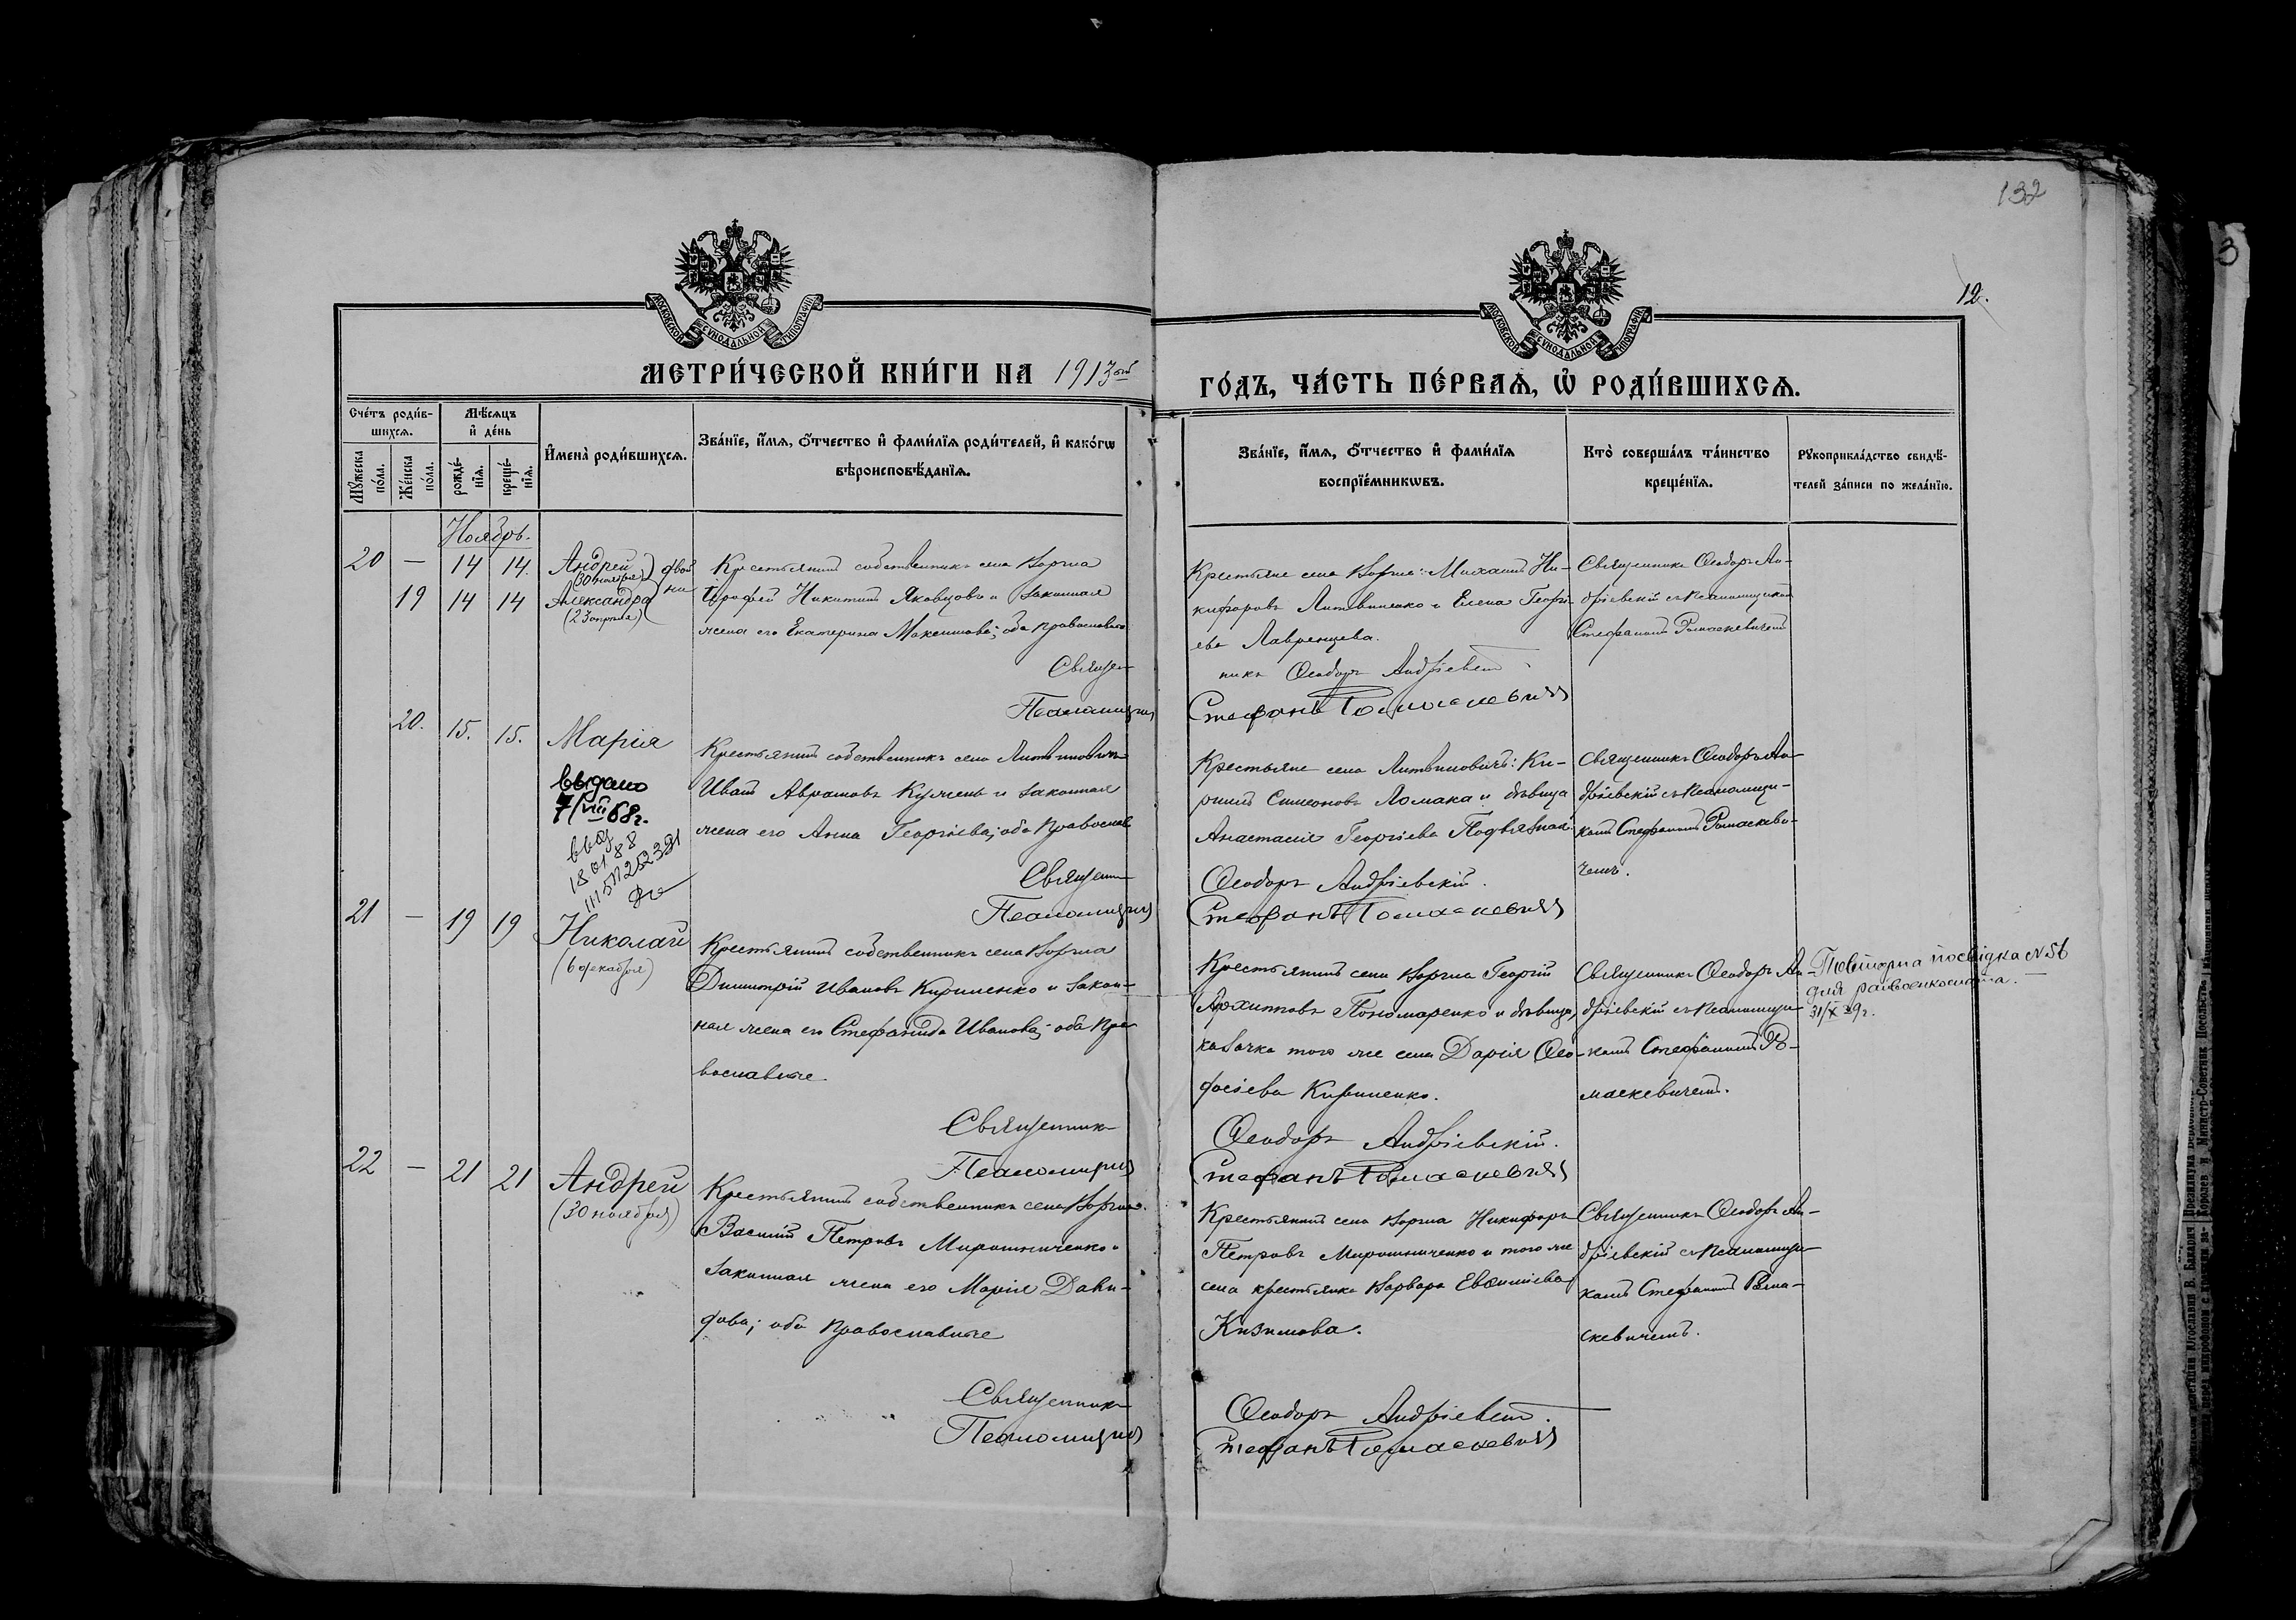 132
12.
МОСКОВСКОЙ СѴНОДАЛЬНОЙ ТИПОГРАФІИ
МОСКОВСКОЙ СѴНОДАЛЬНОЙ ТИПОГРАФІИ
МЕТРИ́ЧЕСКОЙ КНИ́ГИ НА 1913ый
ГО́ДЪ, ЧА́СТЬ ПЕ́РВАѦ, Ѡ҆ РОДИ́ВШИХСѦ.
Сче́тъ роди́в-
шихсѧ.
Мꙋ́жеска по́ла.
Же́нска по́ла.
Мѣ́сѧцъ
и҆ де́нь
рожде́-
нїѧ.
креще́-
нїѧ.
И҆мена̀ роди́вшихсѧ.
Зва́нїе, и҆́мѧ, ѻ҆́тчество и҆ фами́лїѧ роди́телей, и҆ како́гѡ
вѣроисповѣ́данїѧ.
Зва́нїе, и҆́мѧ, ѻ҆́тчество и҆ фами́лїѧ
воспрїе́мникѡвъ.
Кто̀ соверша́лъ та́инство
креще́нїѧ.
Рꙋкоприкла́дство свидѣ́-
телей за́писи по жела́нїю.
Ноябрь.
20 — 14 14. Андрей
(30 ноября)
19 14 14 Александра
(23 апреля)
двой
ни
Крестьянинъ собственникъ села Воргла
Іерофей Никитинъ Яковцовъ и законная
жена его Екатерина Максимова; оба православные
Священ
Псаломщикъ
Крестьяне села Воргла: Михаилъ Ни-
кифоровъ Литвиненко и Елена Георгі
ева Лавренцева.
никъ Ѳеодоръ Андріевскій
Стефанъ Ромаскевичъ
Священникъ Ѳеодоръ Ан-
дріевскій съ псаломщикомъ
Стефаномъ Ромаскевичемъ
20. 15. 15. Марія
выдано
7/VIII 68г.
выд
18 01 88
Крестьянинъ собственникъ села Литвиновичъ
Иванъ Аврамовъ Кужень и законная
жена его Анна Георгіева; оба православ
Священни
Псаломщикъ
Крестьяне села Литвиновичъ: Ки-
риллъ Симеоновъ Ломака и дѣвица
Анастасія Георгіева Подвязная
Ѳеодоръ Андріевскій.
Стефанъ Ромаскевичъ
Священникъ Ѳеодоръ Ан-
дріевскій съ псаломщи-
комъ Стефаномъ Ромаскеви-
чемъ.
21 — 19 19 Николай
(6 декабря)
Крестьянинъ собственникъ села Воргла
Димитрій Ивановъ Кириленко и закон-
ная жена его Стефанида Иванова; оба пра
вославные.
Священникъ
Псаломщикъ
Крестьянинъ села Воргла Георгій
Архипповъ Пономаренко и дѣвица,
казачка того же села Дарія Ѳео-
фосіева Кириленко.
Ѳеодоръ Андріевскій.
Стефанъ Ромаскевичъ
Священникъ Ѳеодоръ Ан-
дріевскій съ псаломщи
комъ Стефаномъ Ро-
маскевичемъ.
Повторна посвідка №56
для райвоенкомата.
31/X 39г.
22 — 21 21 Андрей
(30 ноября)
Крестьянинъ собственникъ села Воргла.
Василій Петровъ Мирошниченко и
законная жена его Марія Дави-
дова; оба православные
Священникъ
Псаломщикъ
Крестьянинъ села Воргла Никифоръ
Петровъ Мирошниченко и того же
села крестьянка Варвара Евѳиміева
Кизимова.
Ѳеодоръ Андріевскій.
Стефанъ Ромаскевичъ
Священникъ Ѳеодоръ Ан-
дріевскій съ псаломщи
комъ Стефаномъ Рома-
скевичемъ.